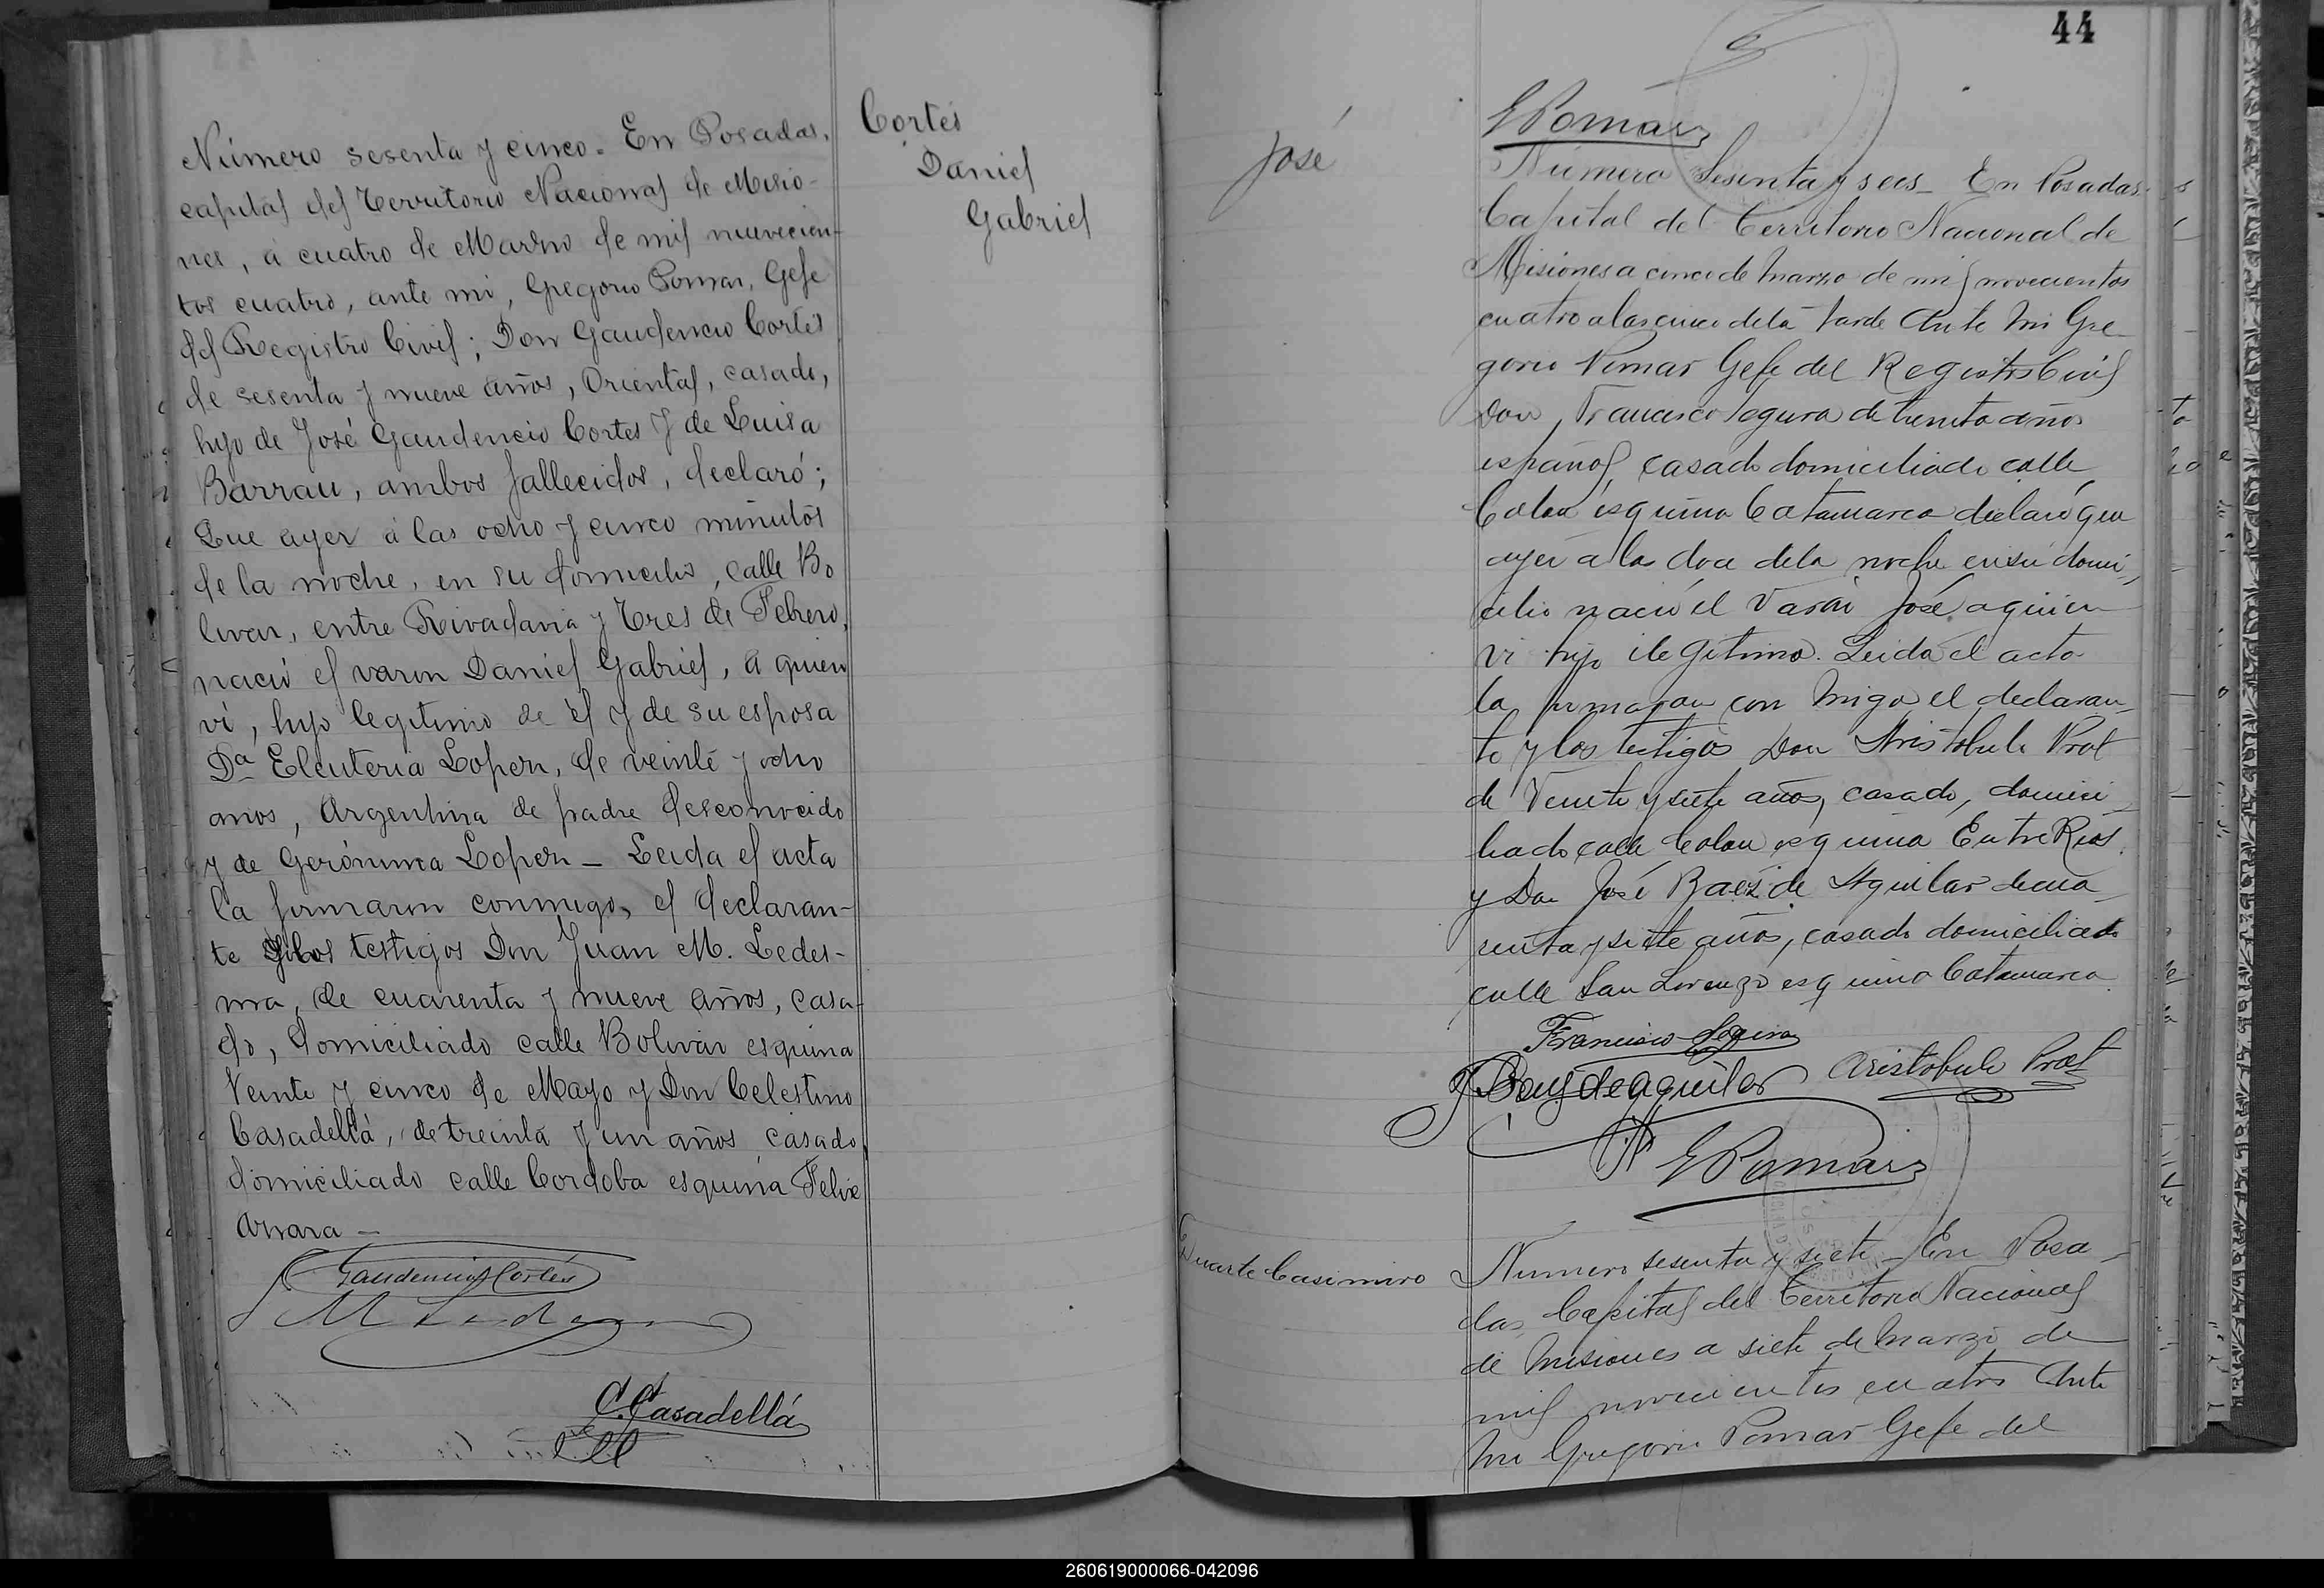 Número sesenta y cinco. En Posadas,
capital del Territorio Nacional de Misio-
nes, á cuatro de Marzo de mil novecien-
tos cuatro, ante mi, Gregorio Pomar, Gefe
del Registro Civil; Don Gaudencio Cortés
de sesenta y nueve años, Oriental, casado,
hijo de José Gaudencio Cortes y de Luisa
Barrau, ambos fallecidos, declaró;
Que ayer á las ocho y cinco minutos
de la noche, en su domicilio, calle Bo
livar, entre Rivadavia y Tres de Febrero,
nació el varon Daniel Gabriel, á quien
ví, hijo legitimo de él y de su esposa
Da Eleuteria Lopez, de veinte y ocho
anos, Argentina de padre desconocido
y de Gerónima Lopez - Leida el acta
la firmaron conmigo, el declaran-
te y los testigos Don Juan M. Ledes-
ma, de cuarenta y nueve años, casa-
do, domiciliado calle Bolivar esquina
Veinte y cinco de Mayo y Don Celestino
Casadellá, de treinta y un años, casado,
domiciliado calle Cordoba esquina Felix
Azara -
Gaudencio Cortés
M Ledesma
C. Casadellá
Cortés
Daniel
Gabriel
44
GPomar
José
Número Sesenta y seis - En Posadas
Capital del Territorio Nacional de
Misiones a cinco de Marzo de mil novecientos
cuatro a las cinco de la tarde Ante Mi Gre
gorio Pomar Gefe del Registro Civil
Don Francisco Segura de treinta años
español, casado domiciliado calle
Colon esquina Catamarca declaró que
ayer a las doce de la noche en su domi
cilio nació el Varon José a quien
vi hijo ilegitimo. Leida el acta
la firmaron con migo el declaran
te y los testigos Don Aristobulo Prat
de Veinte y siete años, casado, domici
liado calle Colon esquina Entre Rios
y Don José Baez de Aguilar de cua
renta y siete años, casado domiciliado
calle San Lorenzo esquina Catamarca
Francisco Segura
J Baez de Aguilar Aristobulo Prat
GPomar
Duarte Casimiro
Numero sesenta y siete - En Posa
das, Capital del Territorio Nacional
de Misiones a siete de Marzo de
mil novecientos cuatro Ante
Mi Gregorio Pomar Gefe del
260619000066-042096